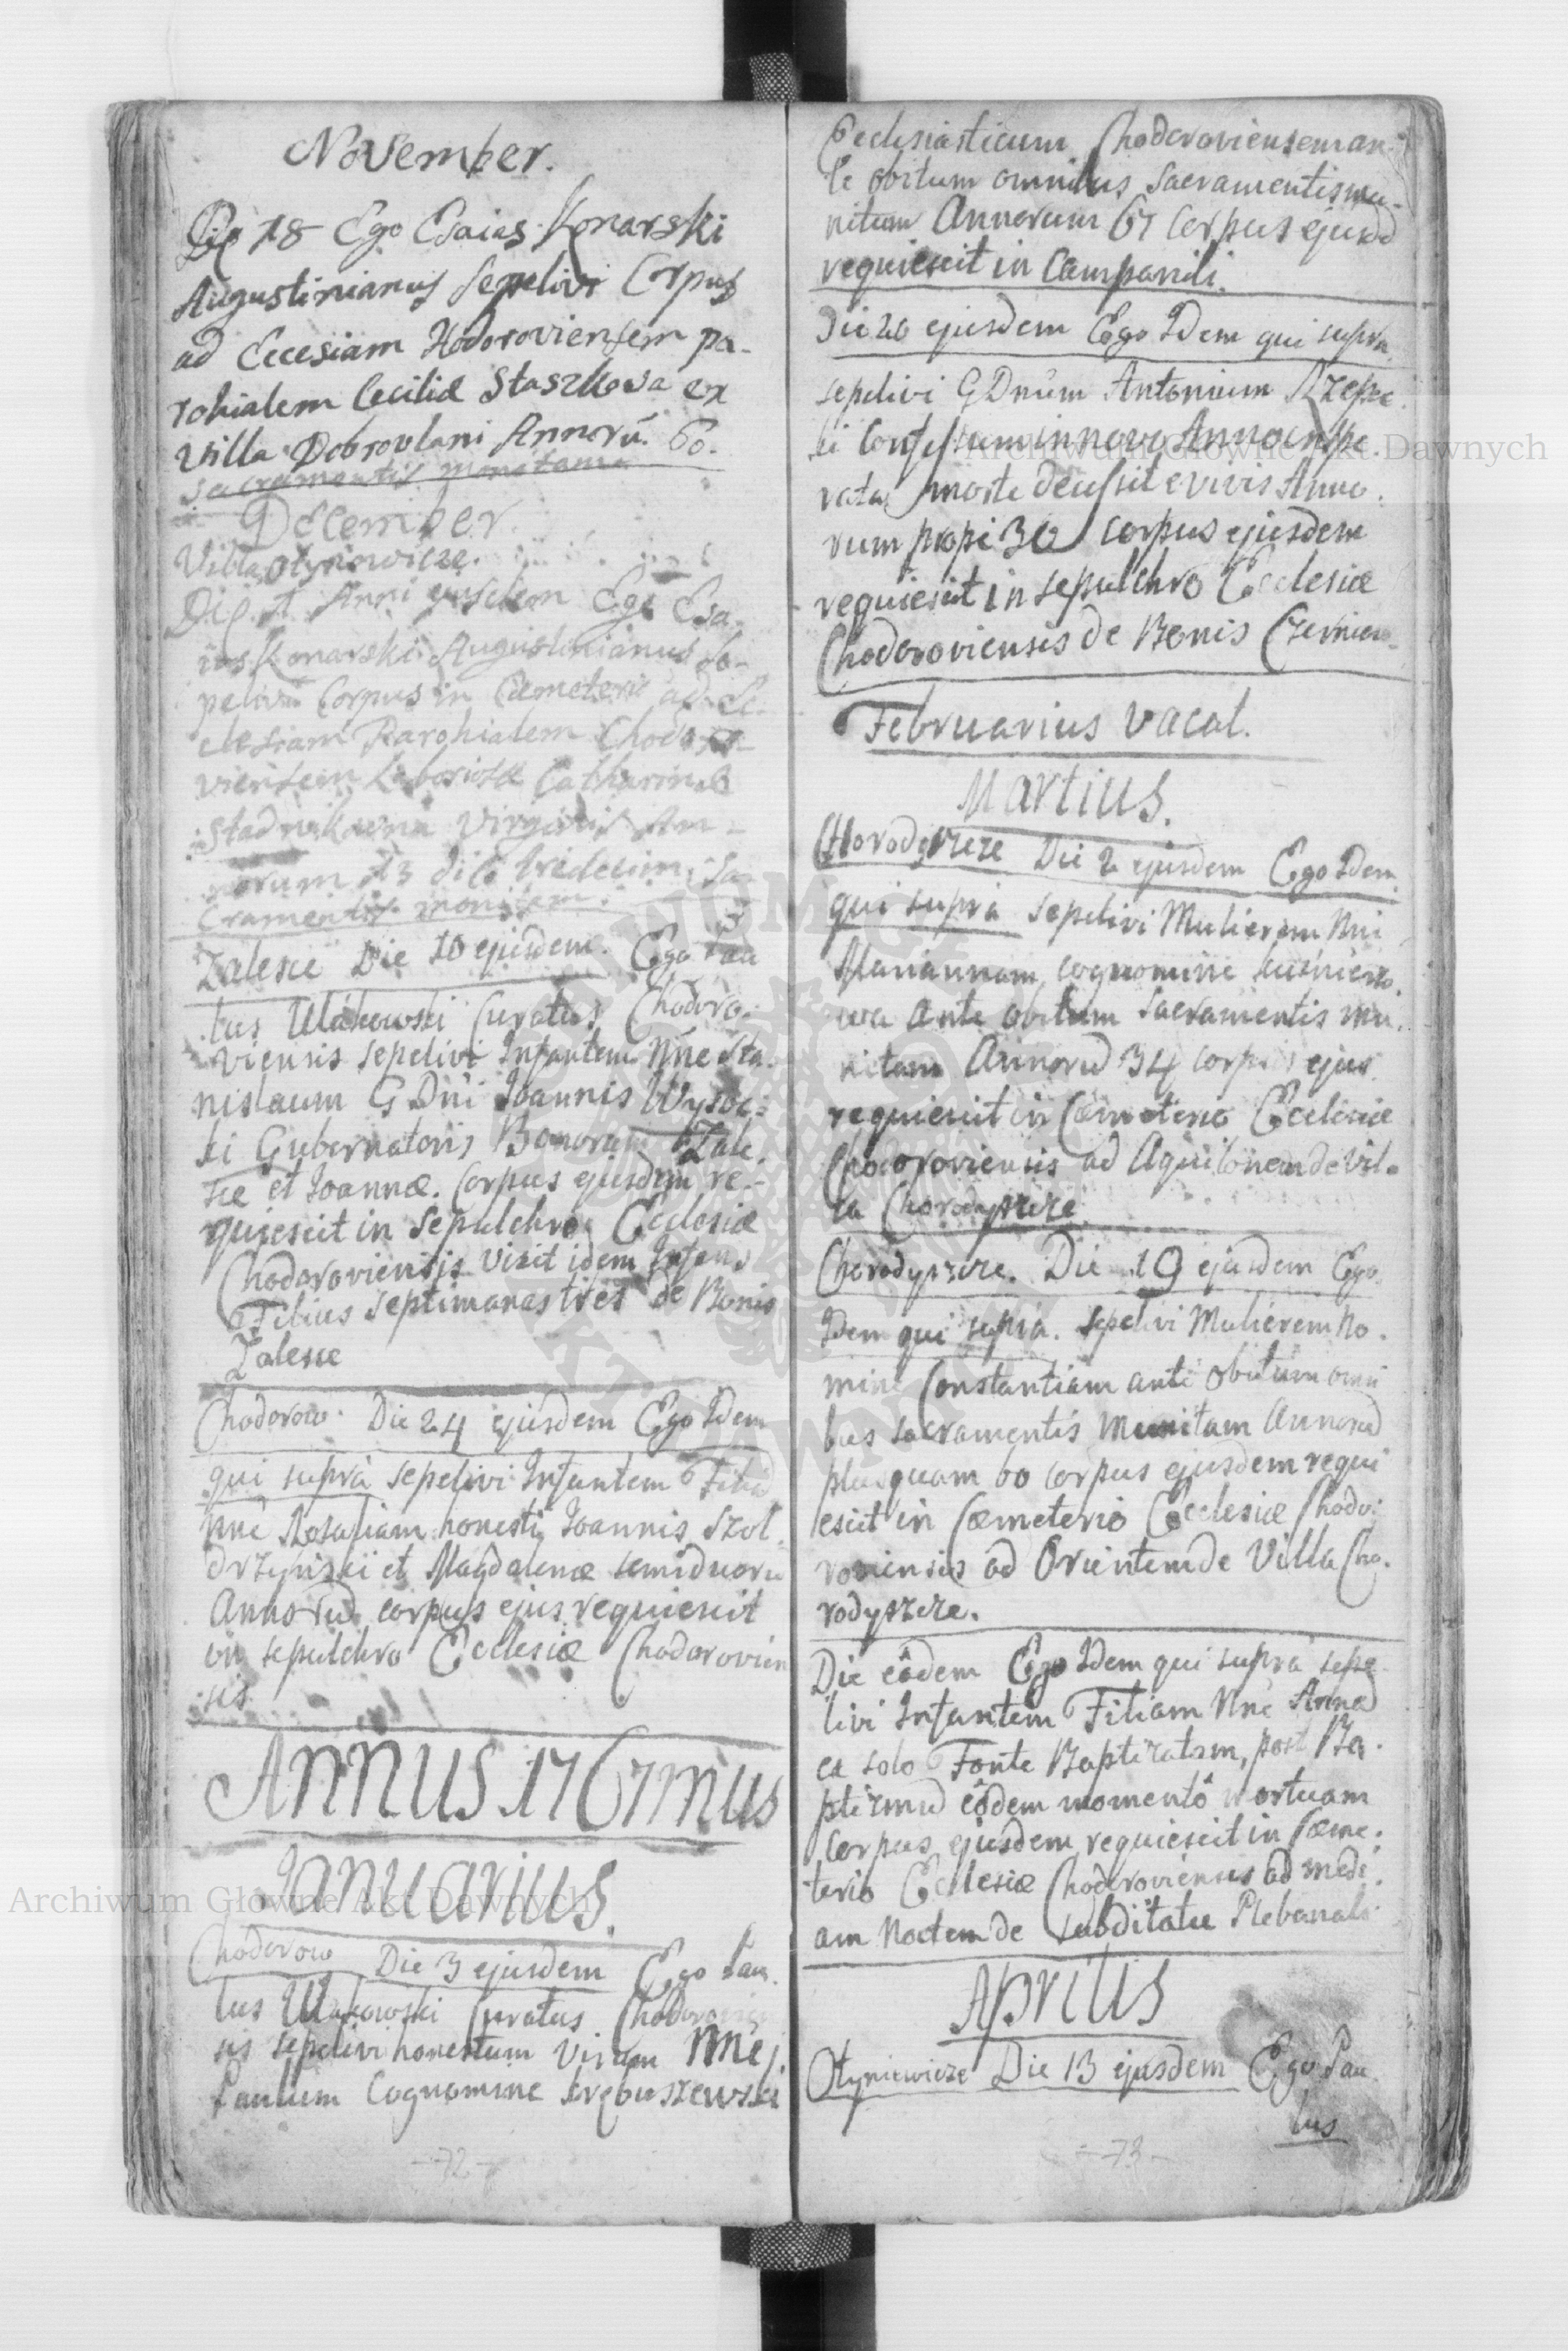 November.
Die 18 Ego Esaias Konarski
Augustinianus Sepelivi Corpus
ad Eccesiam Hodoroviensem pa-
rohialem Ceciliæ Staszkowa ex
villa Dobrovlani Annorū. 60.
sacramentis monitam
December.
Villa Otyniowicze.
Die Anni ejusdem Ego Esa-
ias Konarski Augustinianus Se-
pelivi Corpus in Cæmeterio ad Ec-
clesiam Parohialem Chodoro-
viensem Laboriosæ Catharinæ
Stadnikowna Virginis An-
norum 13 dico tredecim, Sa-
cramentis monitam.
Zalesce Die 10 ejusdem. Ego Pau
lus Ulakowski Curatus Chodoro-
viensis sepelivi Infantem Nne Sta.
nislaum G Dni Ioannis Wysoc-
ki Gubernatoris Bonorum Zale.
sce et Ioannæ. Corpus ejusdem re-
quiescit in Sepulchro Ecclesiæ
Chodoroviensis Vixit idem Infans
Filius septimanas tres de Bonis
Zalesce
Chodorow. Die 24 ejusdem Ego Idem
qui suprà sepelivi Infantem Filiā
Nne Rosaliam honesti Ioannis Szol
drzynskii et Magdalenæ semiduorū
Annorū corpus ejus requiescit
in sepulchro Ecclesiæ Chodorovien
sis
Annus 1767mus
Ianuarius.
Chodorow Die 3 ejusdem Ego Pau.
lus Ulakowski Curatus Chodorovien
sis sepelivi honestum Virum Nne
Paulum Cognomine
-72-
Ecclesiasticum Chodoroviensem an-
te obitum omnibus Sacramentis mu-
nitum Annorum 67 Corpus ejusd
requiescit in Campanili.
Die 20 ejusdem Ego Idem qui supra
sepelivi G Dnūm Antonium Rzepec
ki Confessum in novo Anno inspe.
rata morte decessit e vivis Anno.
rum propè 30 corpus ejusdem
requiescit in sepulchro Ecclesiæ
Chodoroviensis de Bonis
Februarius vacat.
Martius.
Horodyszcze Die 2 ejusdem Ego Idem
qui suprà sepelivi Mulierem Nni
Mariannam cognomine
wa ante obitum Sacramentis mu.
nitam Annorū 34 corpus ejus
requiescit in Cæmeterio Ecclesiæ
Chodoroviensis ad Aquilonem de Vil-
la Chorodyszcze
Chorodyszcze. Die 19 ejusdem Ego
Idem qui suprà. sepelivi Mulierem No.
mine Constantiam ante obitum omni
bus Sacramentis munitam Annorū
plusquam 60 corpus ejusdem requi
escit in Cæmeterio Ecclesiæ Chodo:
roviensis ad Orientem de Villa Cho.
rodyszcze.
Die eôdem Ego Idem qui supra sepe
livi Infantem Filiam Nne Annā
ex solo Fonte Baptizatam, post Ba.
ptizmū eôdem momentô mortuam
Corpus ejusdem requiescit in Cæme.
terio Ecclesiæ Chodoroviensis ad medi.
am Noctem de subditatu Plebanali
Aprilis
Otyniewicze Die 13 ejusdem Ego Pau
lus
-73-
Archiwum Główne Akt Dawnych
Archiwum Główne Akt Dawnych